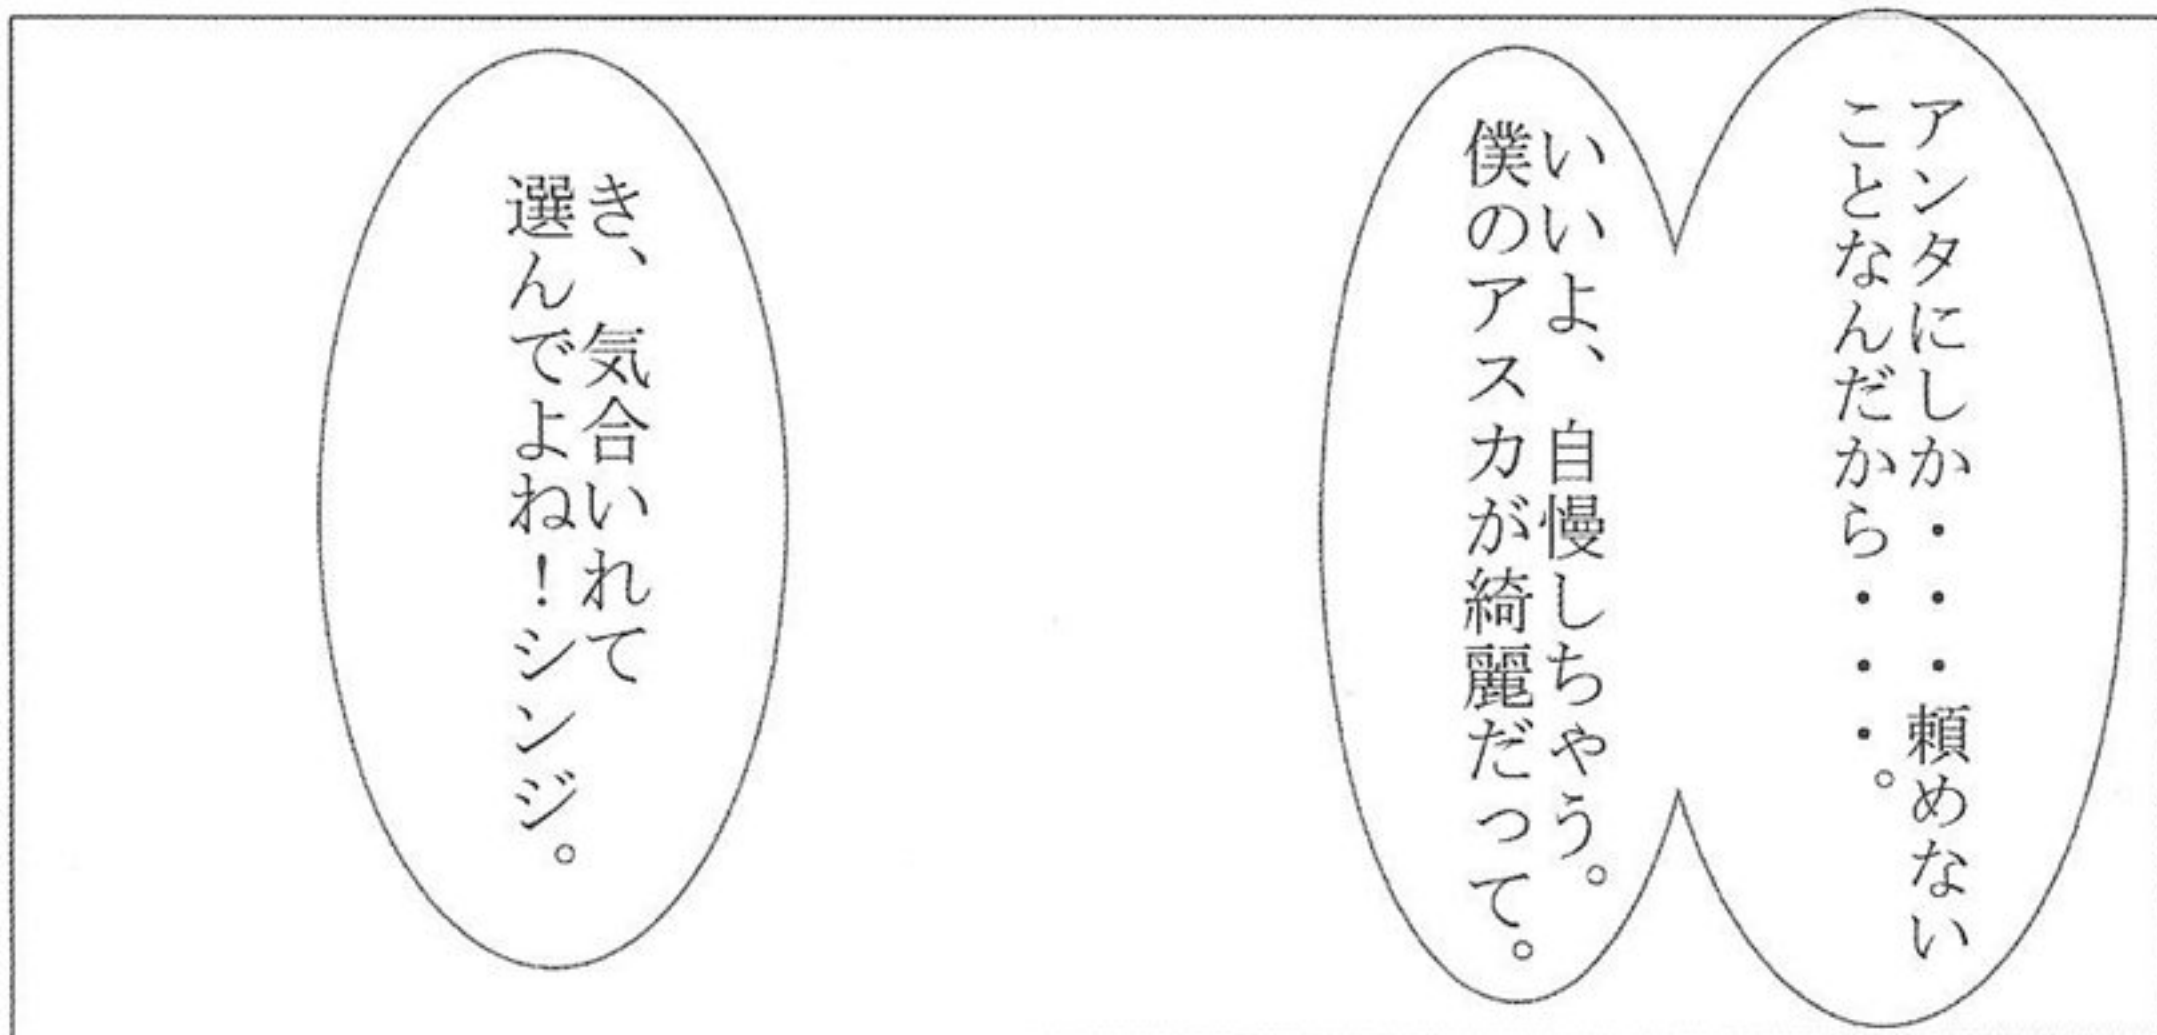 アンタにしか・・・頼めない
ことなんだから・・・。
いいよ、自慢しちゃう。
僕のアスカが綺麗だって。
き、気合いれて
選んでよね！シンジ。